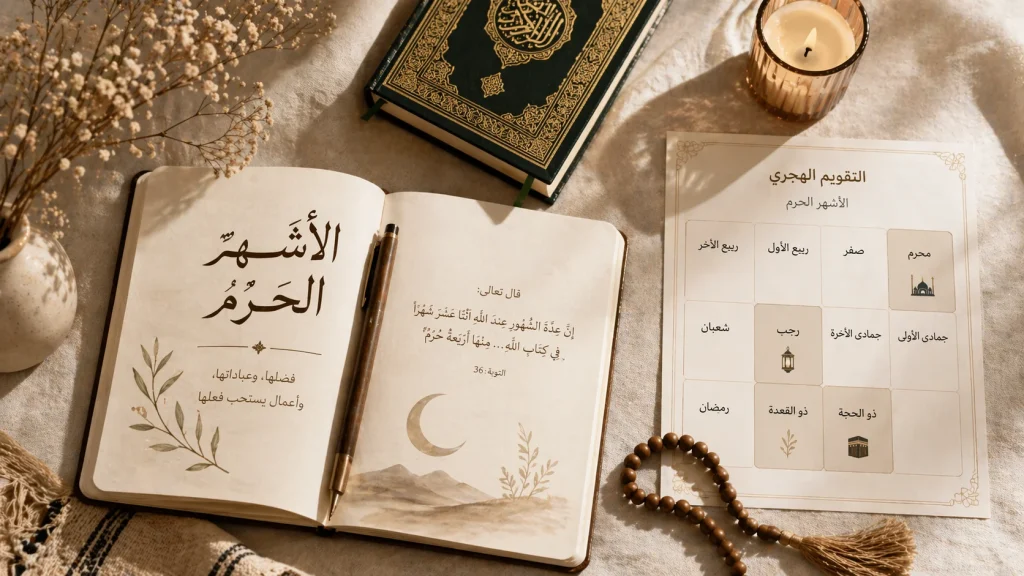 الأشَـهرّ
الحَرُمُ
فضلها، وعباداتها،
وأعمال يستحب فعلها
قال تعالى:
إنَّ عِدَّةَ الشُّهُورِ عِندَ اللَّهِ اثْنَا عَشَرَ شَهْرًا
فِي كِتَابِ اللَّهِ... مِنْهَا أَرْبَعَةٌ حُرُمٌ
التوبة: 36
التقويم الهجري
الأشهر الحرم
محرم
صفر
ربيع الأول
ربيع الأخر
جمادى الأولى
جمادى الأخرة
رجب
شعبان
ذو الحجة
ذو القعدة
رمضان